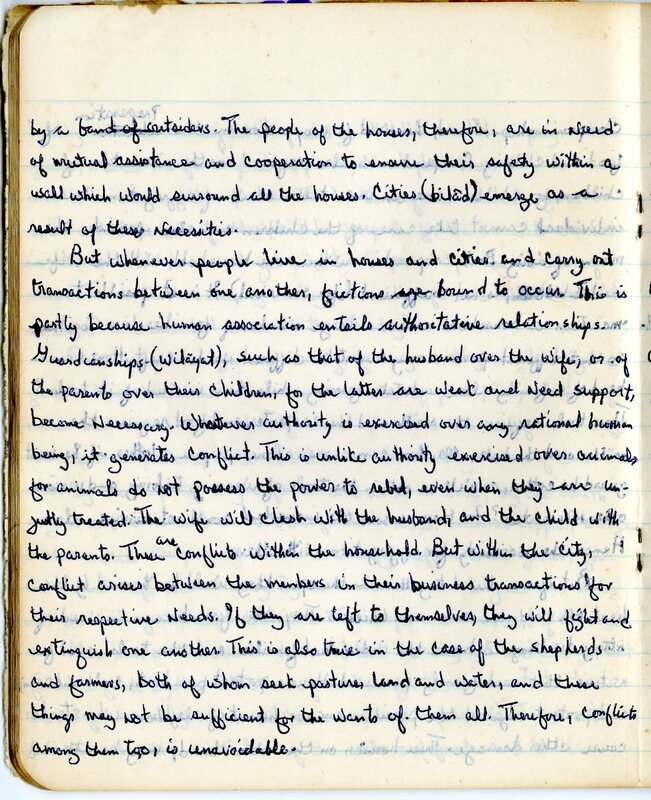 by a band of outsiders. The people of the houses, therefore, are in need
of mutual assistance and cooperation to ensure their safety within a
wall which would surround all the houses. Cities (bilād) emerge as a
result of these necessities.
But whenever people live in houses and cities and carry out
transactions between one another, fictions are bound to occur. This is
partly because human association entails authoritative relationships.
Guardianships (wilāyat), such as that of the husband over the wife, or of
the parents over their children, for the latter are weak and need support,
become necessary. Whatever authority is exercised over any rational human
being, it generates conflict. This is unlike authority exercised over animals
for animals do not possess the power to rebel, even when they are un-
justly treated. The wife will clash with the husband, and the child with
the parents. These are conflicts within the household. But within the city,
conflict arises between the members in their business transactions for
their respective needs. If they are left to themselves, they will fight and
extinguish one another. This is also true in the case of the shepherds
and farmers, both of whom seek pastures, land and water, and these
things may not be sufficient for the wants of them all. Therefore, conflicts
among them too, is unavoidable.